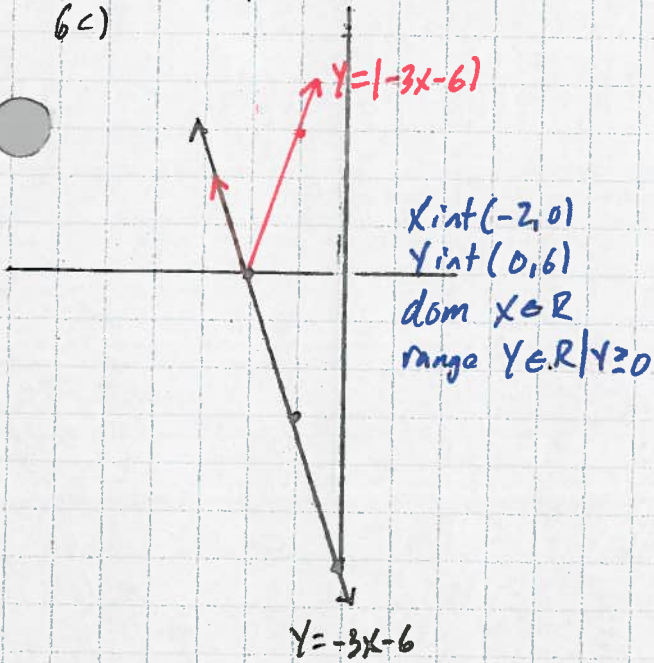 6c)
Y=|-3x-6|
Xint(-2,0)
Yint(0,6)
dom X∈R
range Y∈R|Y≥0
Y=-3x-6